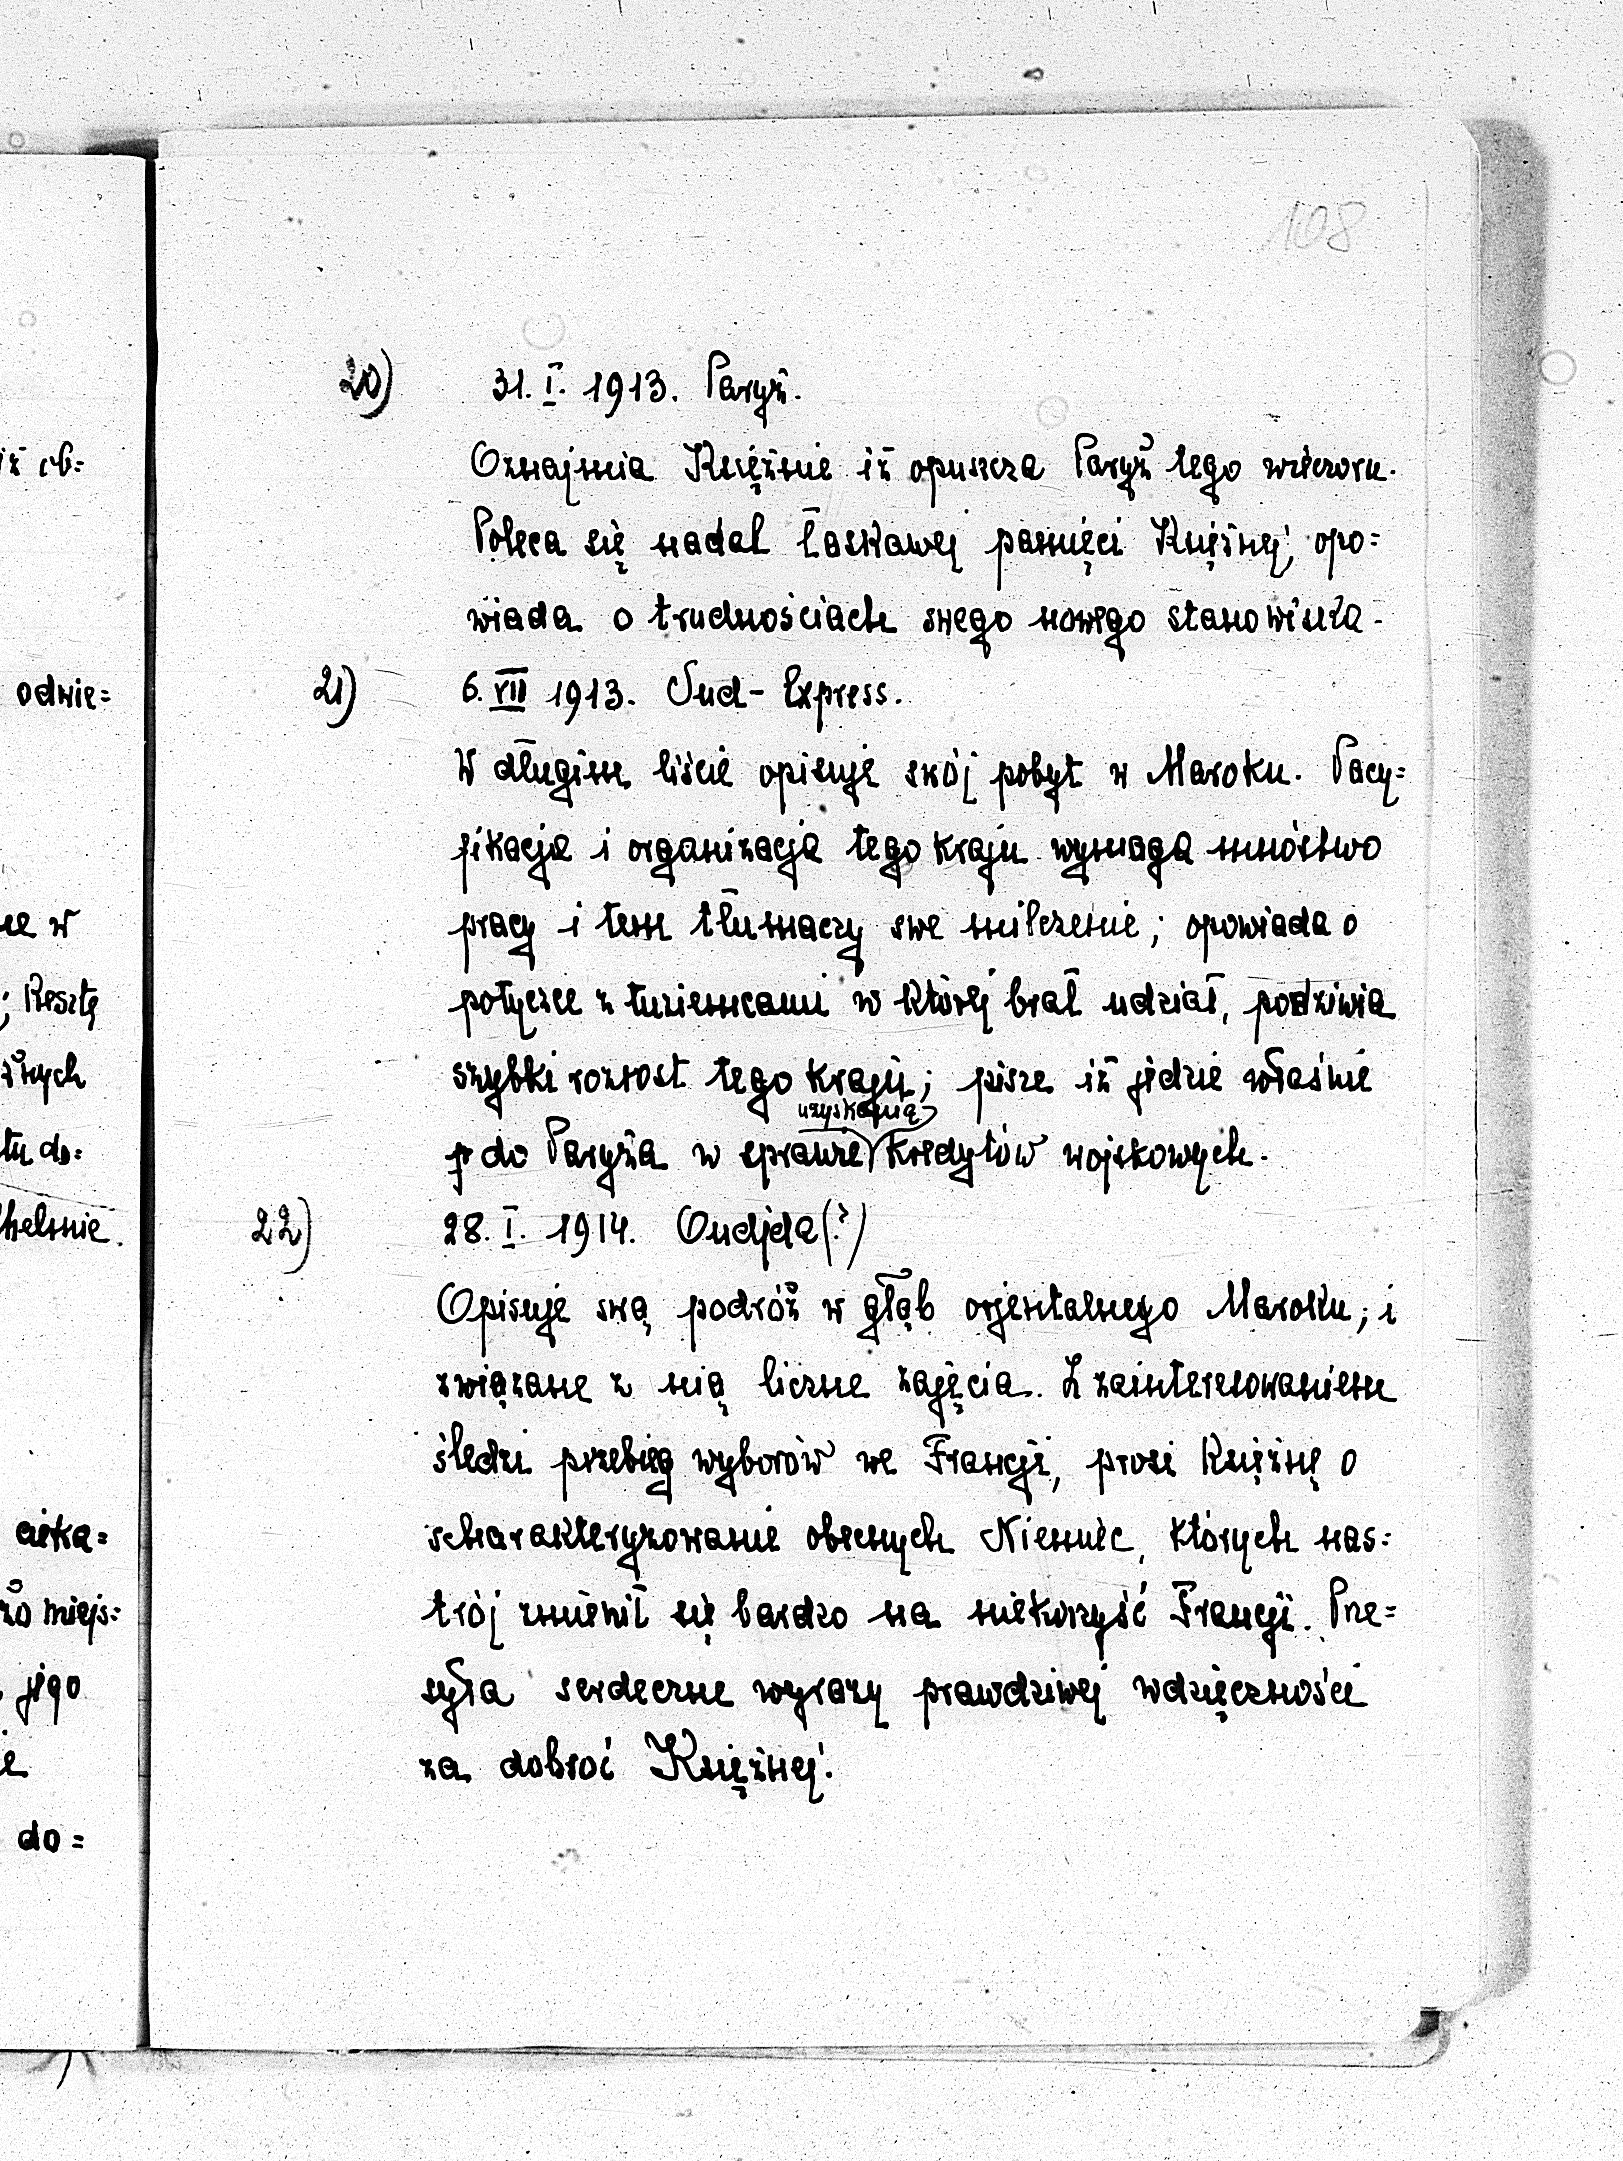 108
20) 31. I. 1913. Paryż.
Oznajmia Księżnie iż opuszcza Paryż tego wieczoru.
Poleca się nadal łaskawej pamięci Księżnej, opo=
wiada o trudnościach swego nowego stanowiska.
21) 6. VII 1913. Sud-Express.
W długim liście opisuje swój pobyt w Maroku. Pacy=
fikacja i organizacja tego kraju wymaga mnóstwo
pracy i tem tłumaczy swe milczenie; opowiada o
potyczce z tuziemcami w której brał udział, podziwia
szybki rozrost tego kraju; pisze iż jedzie właśnie
uzyskania
do Paryża w sprawie kredytów wojskowych.
22) 28. I. 1914. Oudjda (?)
Opisuje swą podróż w głąb orjentalnego Maroku; i
związane z nią liczne zajęcia. Z zainteresowaniem
śledzi przebieg wyborów we Francji, prosi Księżnę o
scharakteryzowanie obecnych Niemiec, których nas=
trój zmienił się bardzo na niekorzyść Francji. Prze=
syła serdeczne wyrazy prawdziwej wdzięczności
za dobroć Księżnej.
odwie=
; Resztę
tu do=
cieka=
miejs=
jego
do=